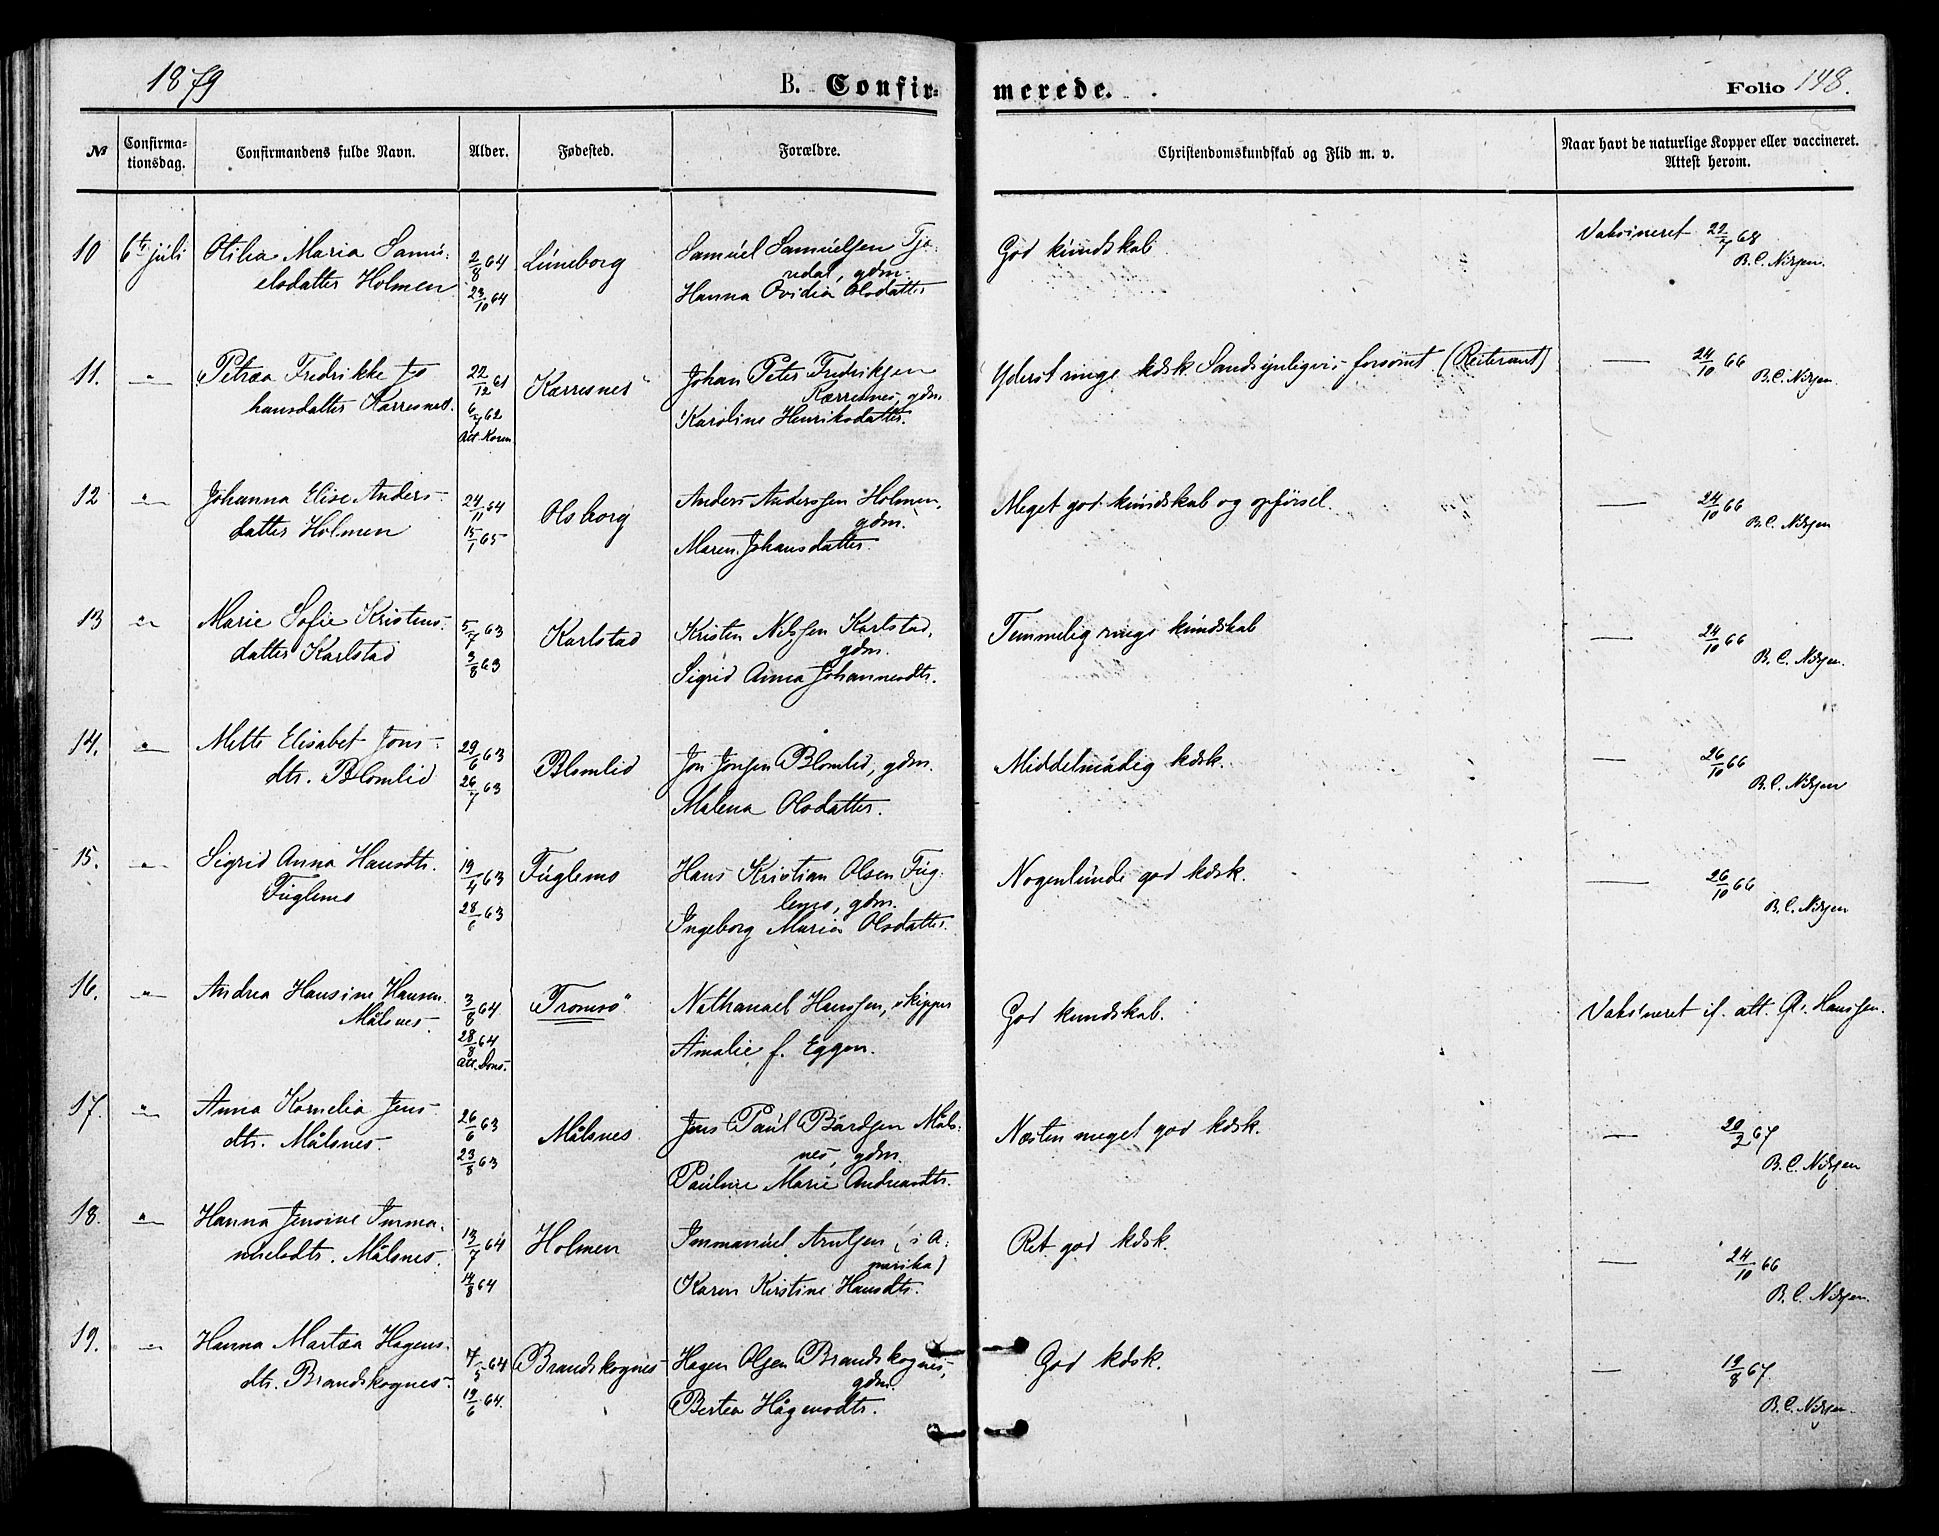 1879
B. Confir-
merede.
Folio 148.
№
Confirma-
tionsdag.
Confirmandens fulde Navn.
Alder.
Fødested.
Forældre.
Christendomskundskab og Flid m. v.
Naar havt de naturlige Kopper eller vaccineret.
Attest herom.
10 6te juli Otilia Maria Samu- 2/8 64 Luneborg Samuel Samuelsen God kundskab. Vaksineret 22/7 68
elsdatter Holmen 23/10 64 gdm. B. C. Nilsen.
Hanna Ovidia Olsdatter
11. " Petrea Fredrikke Jo- 22/12 61 Karresnes Johan Peter Fredriksen Yderst ringe kdsk. Sandsynligvis forsømt (Reiterant) — 24/10 66
hansdatter Karresnes. 6/7 62 Karresnes, gdm. B. C. Nilsen.
Att. Koren Karoline Henriksdatter.
12 " Johanna Elise Anders- 24/11 64 Olsborg Anders Anderssen Holmen, Meget god kundskab og opførsel. — 24/10 66
datter Holmen 15/1 65 gdm. B. C. Nilsen
Maren Johansdatter.
13 " Marie Sofie Kristens- 5/7 63 Karlstad Kristen Nilssen Karlstad, Temmelig ringe kundskab — 24/10 66
datter Karlstad 3/8 63 gdm. B. C. Nilsen.
Sigrid Anna Johannesdtr.
14. " Mette Elisabet Jons- 29/6 63 Blomlid Jon Jonsen Blomlid, gdm. Middelmådig kdsk. — 26/10 66
dtr. Blomlid 26/7 63 Malena Olsdatter. B. C. Nilsen
15. " Sigrid Anna Hansdtr. 19/4 63 Fuglemo Hans Kristian Olsen Fug- Nogenlunde god kdsk. — 26/10 66
Fuglemo 28/6 63 lemo, gdm. B. C. Nilsen
Ingeborg Maria Olsdatter.
16. " Andrea Hansine Hansen 3/8 64 Tromsø" Nathanael Hanssen, skipper God kundskab. Vaksineret if. att. Hanssen.
Målsnes. 28/8 64 Amalie f. Eggen.
Att. Dons.
17. " Anna Kornelia Jens- 26/6 63 Målsnes. Jens Paul Bårdsen Måls- Næsten meget god kdsk. — 20/2 67
dtr. Målsnes. 23/8 63 nes, gdm. B. C. Nilsen
Pauline Marie Andreasdtr.
18. " Hanna Jensine Imma- 13/7 64 Holmen Immanuel Arntsen (i A- Ret god kdsk. — 24/10 66
nuelsdtr. Målsnes. 14/8 64 merika) B. C. Nilsen.
Karen Kirstine Hansdtr.
19. " Hanna Martea Hagens- 7/5 64 Brandskognes Hagen Olsen Brandskognes, God kdsk. — 19/8 67.
dtr. Brandskognes. 19/6 64. gdm. B. C. Nilsen.
Bertea Hågensdtr.